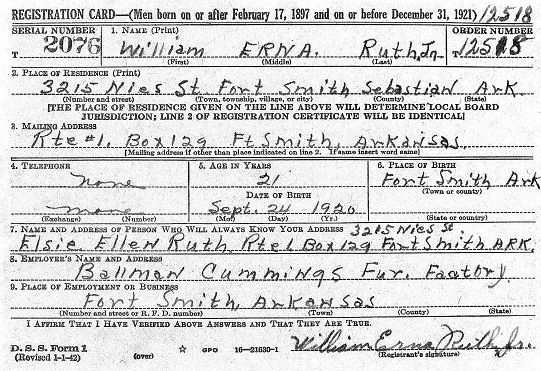 REGISTRATION CARD—(Men born on or after February 17, 1897 and on or before December 31, 1921) 12518
SERIAL NUMBER 1. NAME (Print) ORDER NUMBER
T 2076 William ERNA. Ruth, Jr. 12518
(First) (Middle) (Last)
2. PLACE OF RESIDENCE (Print)
3215 Nies St. Fort Smith Sebastian Ark
(Number and street) (Town, township, village, or city) (County) (State)
[THE PLACE OF RESIDENCE GIVEN ON THE LINE ABOVE WILL DETERMINE LOCAL BOARD
JURISDICTION; LINE 2 OF REGISTRATION CERTIFICATE WILL BE IDENTICAL]
3. MAILING ADDRESS
Rte #1. Box 129 Ft Smith, Arkansas.
[Mailing address if other than place indicated on line 2. If same insert word same]
4. TELEPHONE 5. AGE IN YEARS 6. PLACE OF BIRTH
none 21 Fort Smith Ark
DATE OF BIRTH (Town or county)
none Sept. 24 1920
(Exchange) (Number) (Mo.) (Day) (Yr.) (State or country)
7. NAME AND ADDRESS OF PERSON WHO WILL ALWAYS KNOW YOUR ADDRESS 3215 Nies St.
Elsie Ellen Ruth Rte 1 Box 129 Fort Smith ARK.
8. EMPLOYER'S NAME AND ADDRESS
Ballman Cummings Fur. Factory.
9. PLACE OF EMPLOYMENT OR BUSINESS
Fort Smith, Arkansas
(Number and street or R. F. D. number) (Town) (County) (State)
I AFFIRM THAT I HAVE VERIFIED ABOVE ANSWERS AND THAT THEY ARE TRUE.
D. S. S. Form 1 William Erna Ruth, Jr.
(Revised 1-1-42) (over) ☆ GPO 16—21630-1 (Registrant's signature)